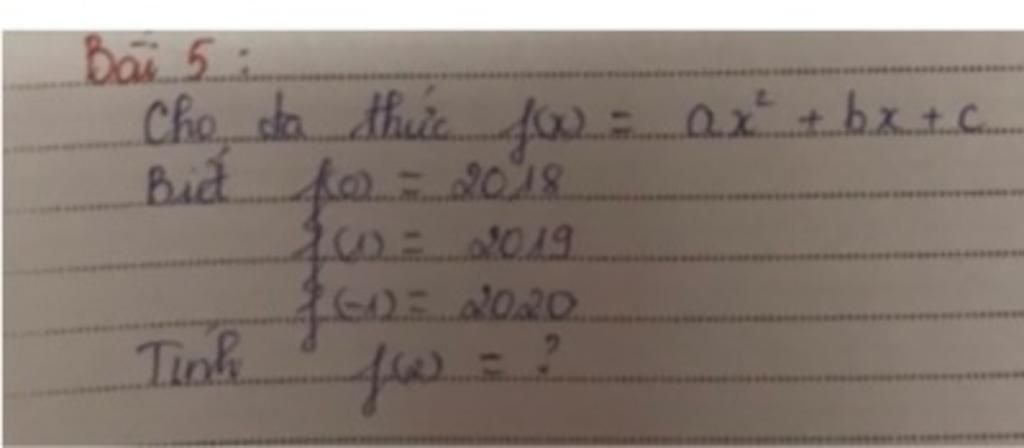 Bài 5 :
Cho đa thức f(x) = ax² + bx + c
Biết f(0) = 2018
f(1) = 2019
f(-1) = 2020
Tính f(2) = ?